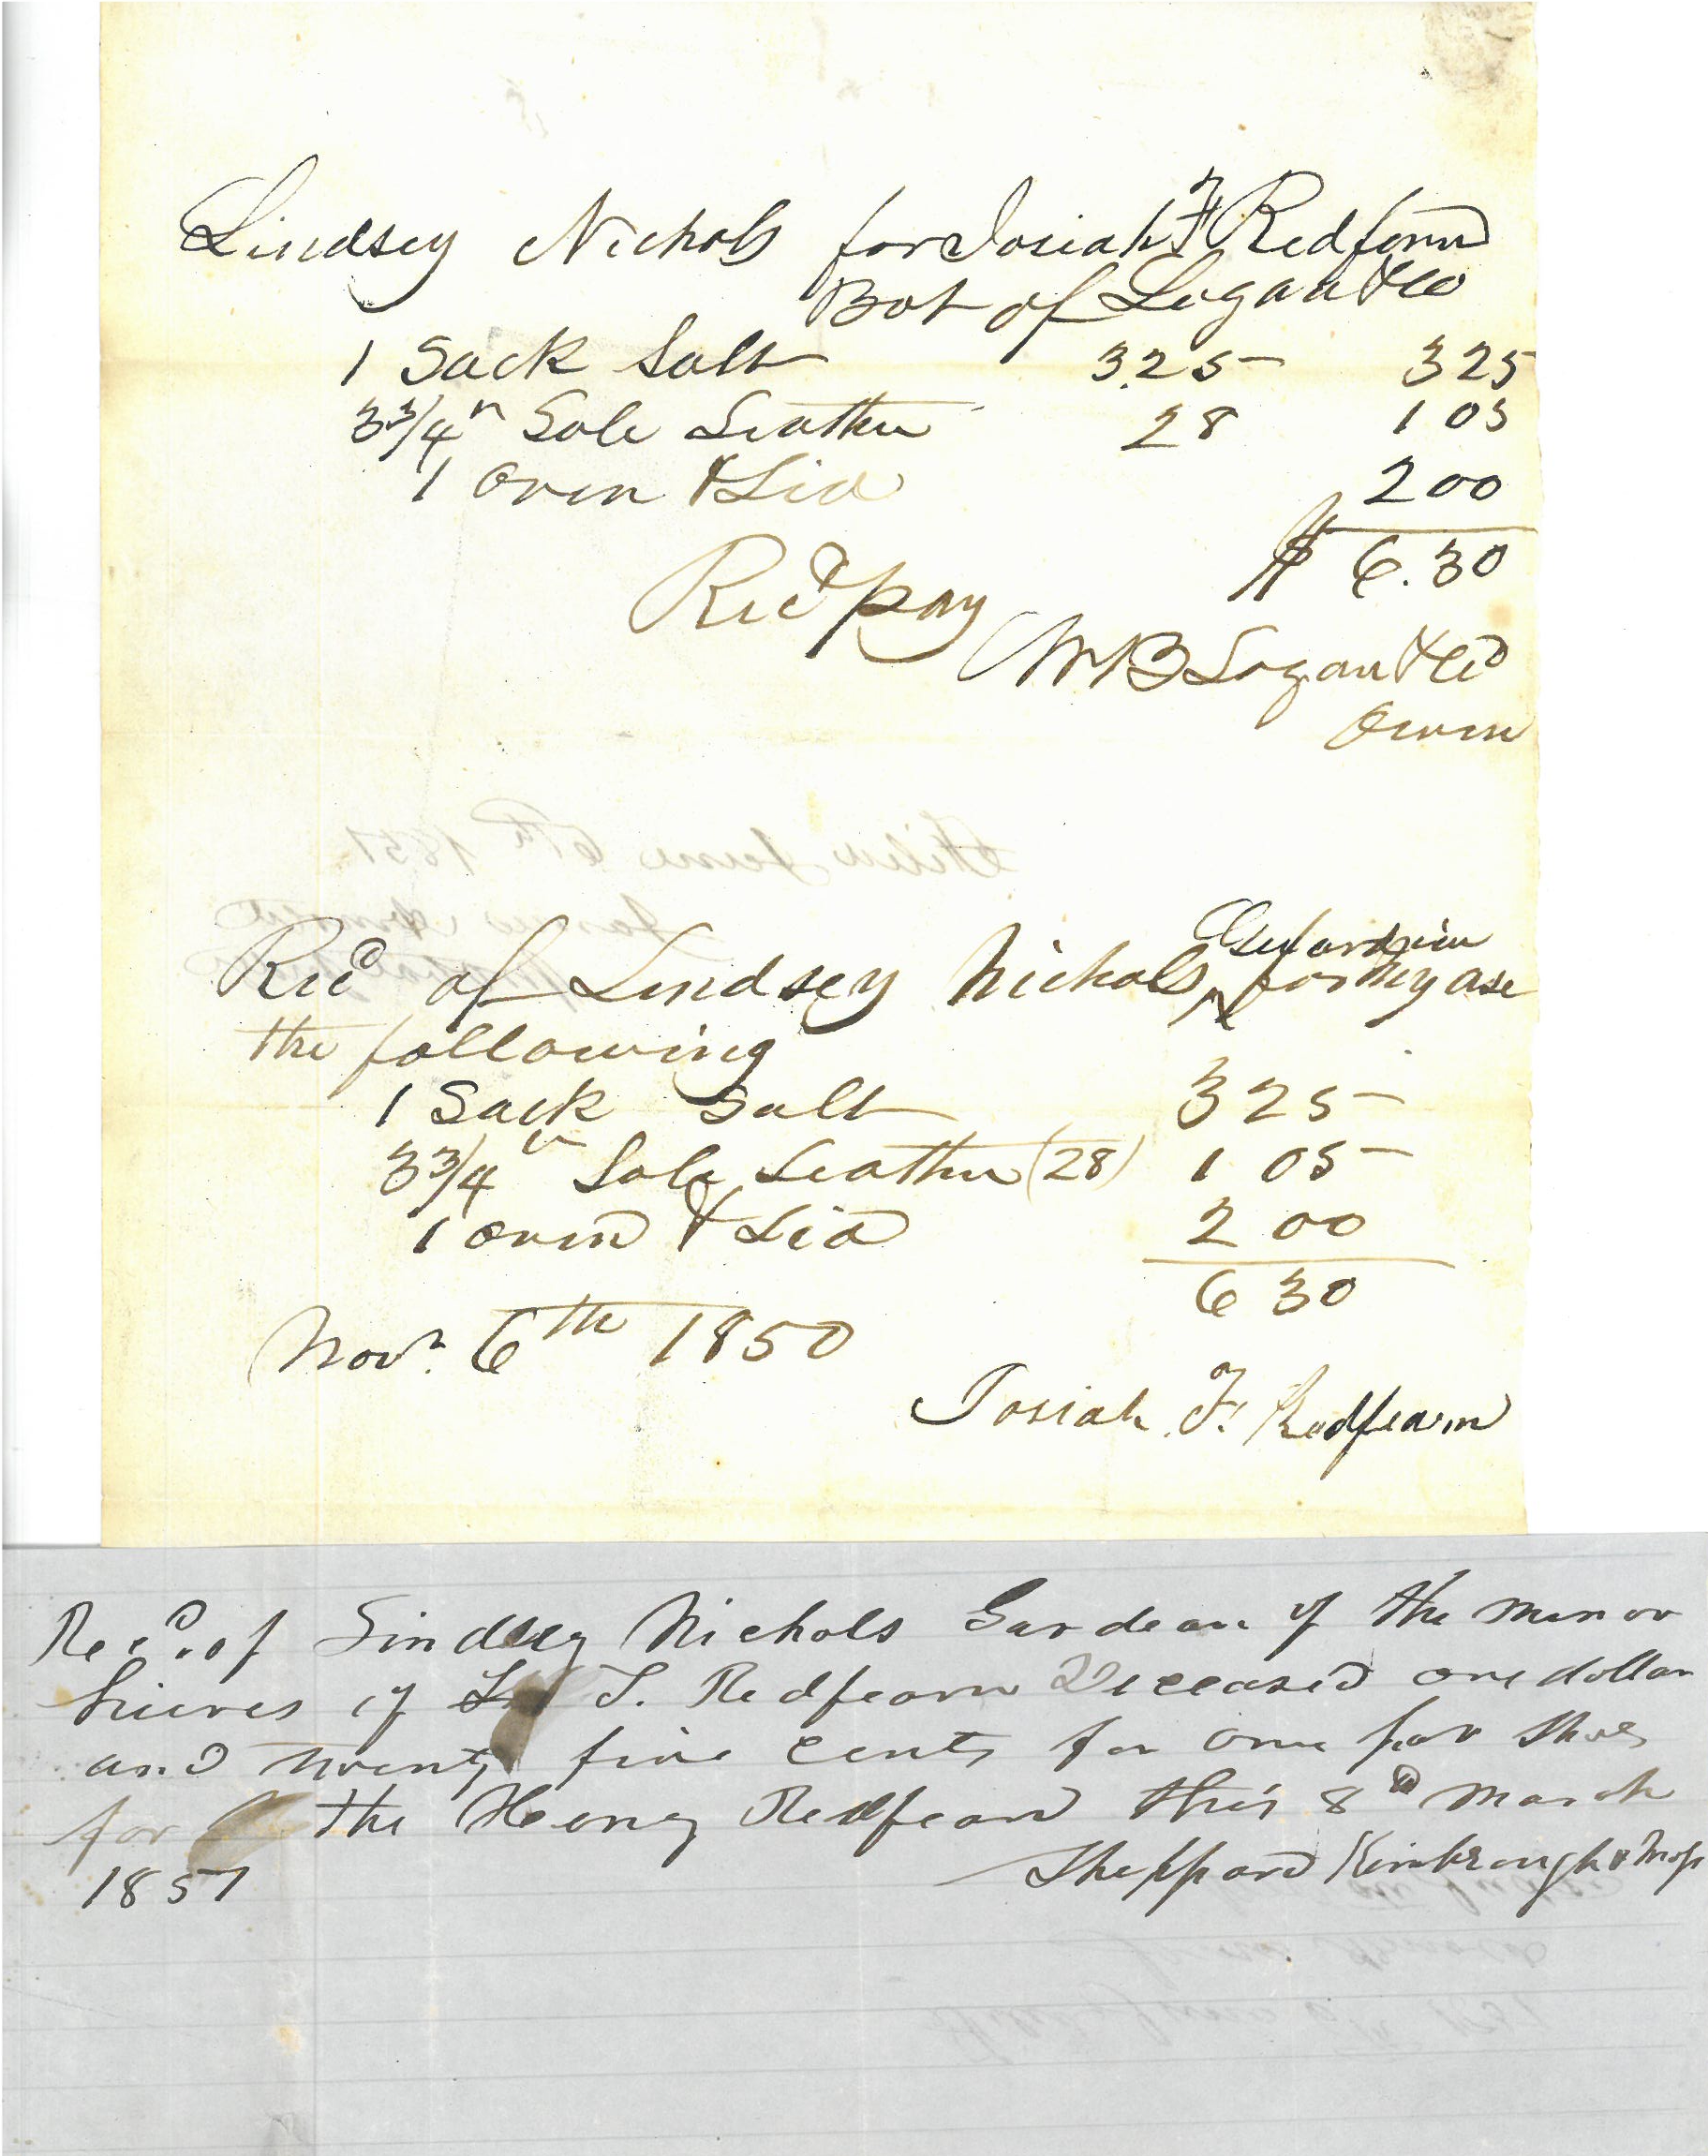 Lindsey Nichols for Josiah F Redfern
Bot of Logan & Co
1 Sack Salt 3.25 3 25
3 3/4 " Sole Leather 28 1 05
1 Oven & Lid 2 00
$ 6.30
Recd pay
Wm B Logan & Co
Filed June 6th 1851
James
Recd of Lindsey Nichols, Gufardian for my ase
the following
1 Sack Salt 3 25
3 3/4 " Sole Leather (28) 1 05
1 Oven & Lid 2 00
6 30
Novr. 6th 1850
Josiah F. Redfearn
Recd. of Lindsey Nichols Gardean of the minor
hieres of T. Redfearn Deceased one dollar
and twenty five cents for one par Shoes
for the Henry Redfearn this 8th March
1851
Sheppard Kimbrough &